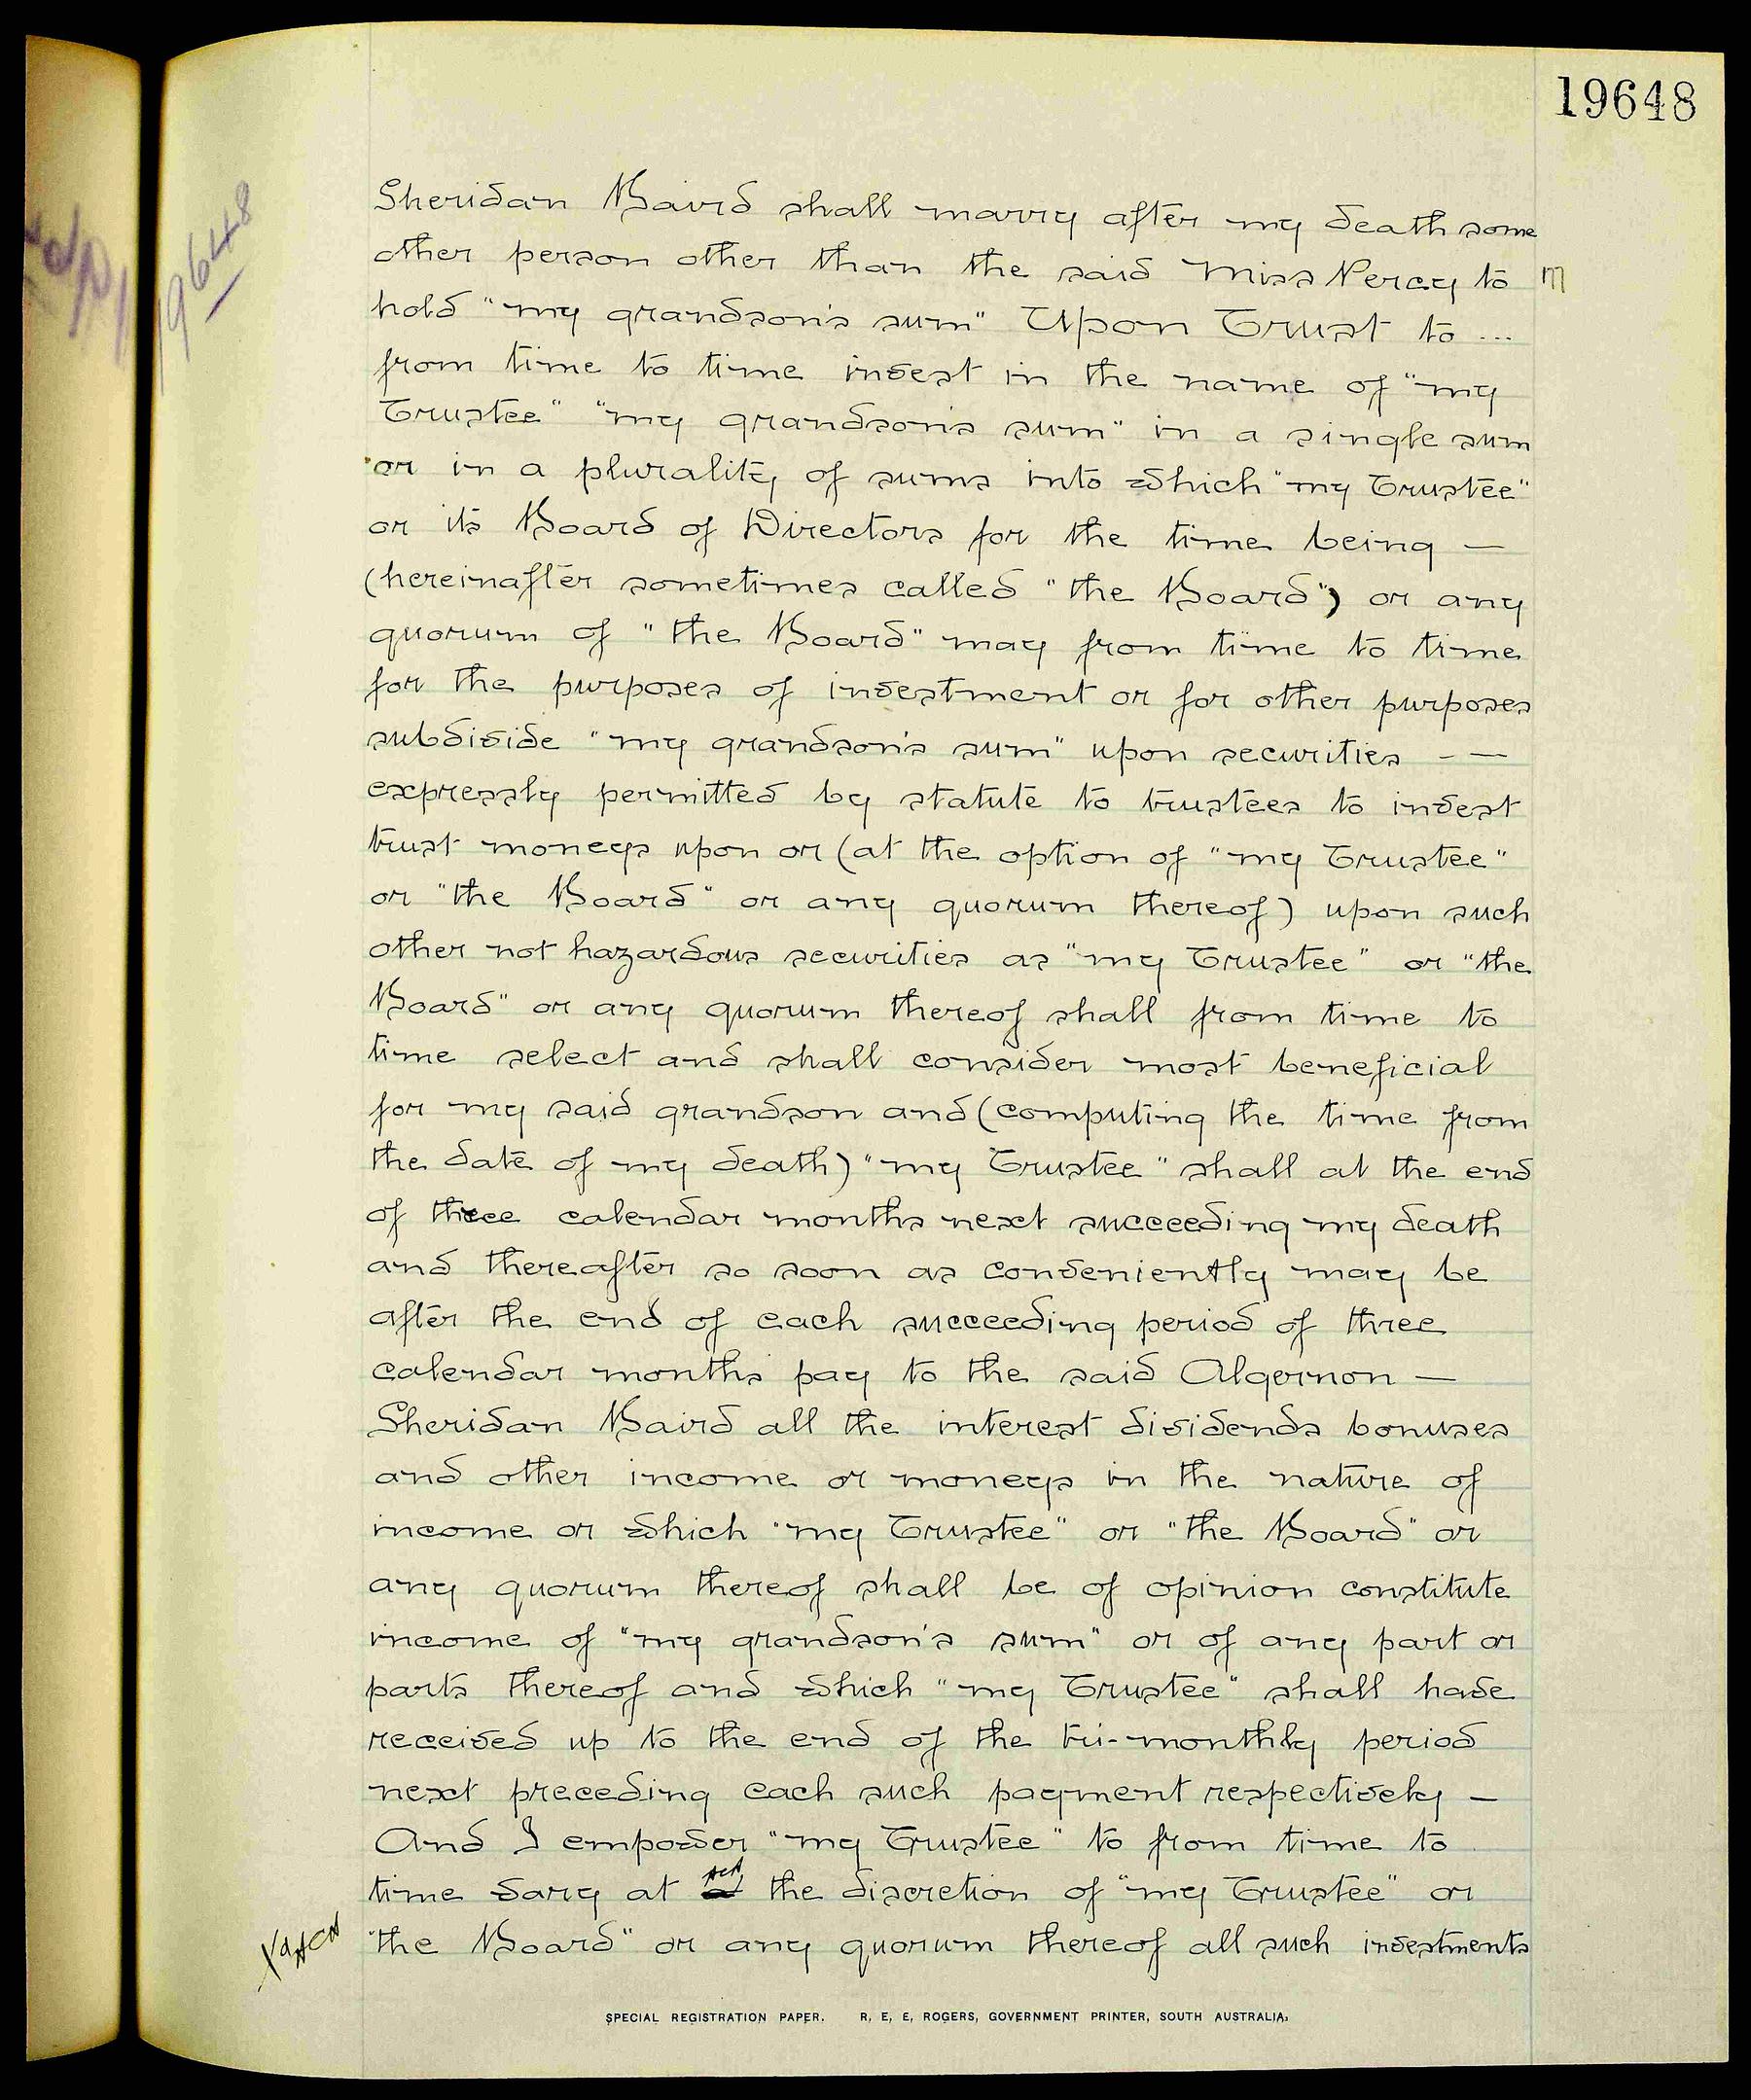 19648
19648
Sheridan Baird shall marry after my death some
other person other than the said Miss Percy to
hold "my grandson's sum" Upon Trust to ...
from time to time invest in the name of "my
Trustee" "my grandson's sum" in a single sum
or in a plurality of sums into which "my Trustee"
or its Board of Directors for the time being —
(hereinafter sometimes called "the Board") or any
quorum of "the Board" may from time to time
for the purposes of investment or for other purposes
subdivide "my grandson's sum" upon securities - —
expressly permitted by statute to trustees to invest
trust moneys upon or (at the option of "my Trustee"
or "the Board" or any quorum thereof) upon such
other not hazardous securities as "my Trustee" or "the
Board" or any quorum thereof shall from time to
time select and shall consider most beneficial
for my said grandson and (computing the time from
the date of my death) "my Trustee" shall at the end
of three calendar months next succeeding my death
and thereafter so soon as conveniently may be
after the end of each succeeding period of three
calendar months pay to the said Algernon —
Sheridan Baird all the interest dividends bonuses
and other income or moneys in the nature of
income or which "my Trustee" or "the Board" or
any quorum thereof shall be of opinion constitute
income of "my grandson's sum" or of any part or
parts thereof and which "my Trustee" shall have
received up to the end of the tri-monthly period
next preceding each such payment respectively —
And I empower "my Trustee" to from time to
time vary at the discretion of "my Trustee" or
"the Board" or any quorum thereof all such investments
SPECIAL REGISTRATION PAPER. R, E, E, ROGERS, GOVERNMENT PRINTER, SOUTH AUSTRALIA.